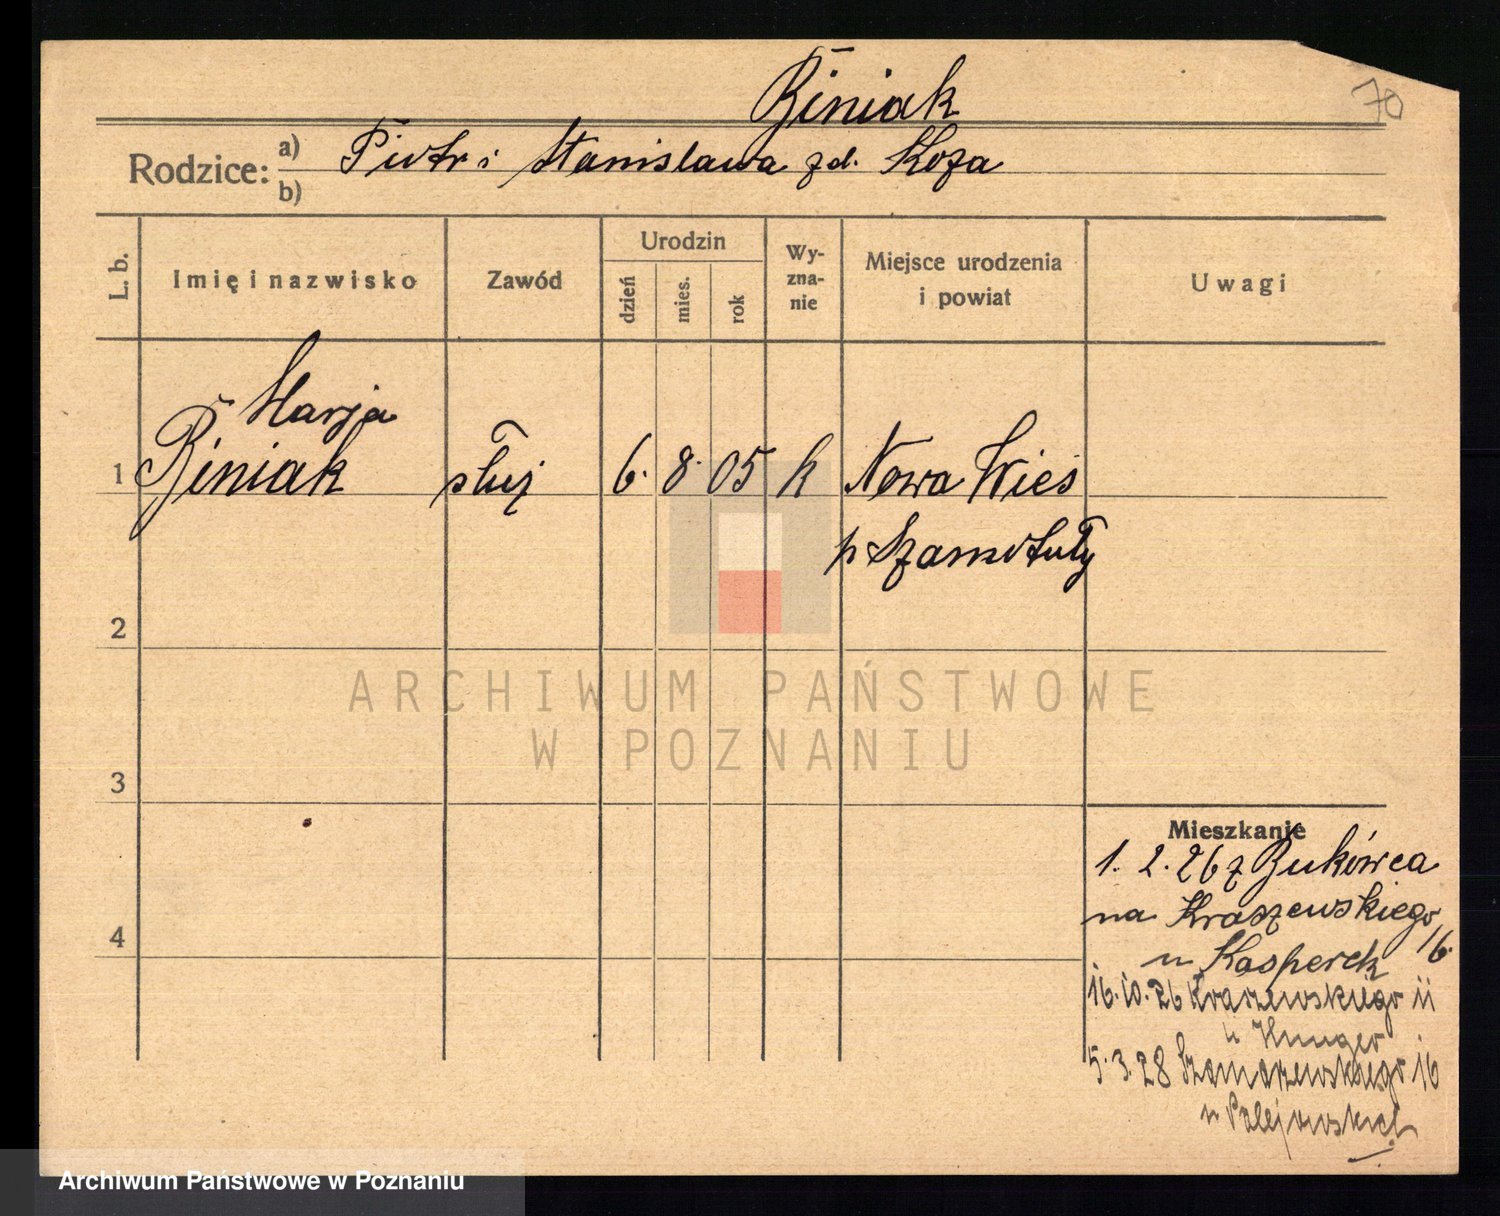 Biniak
70
Rodzice: a) Piotr i Stanisława zd. Koza
b)
L. b. Imię i nazwisko Zawód Urodzin dzień mies. rok Wy-zna-nie Miejsce urodzenia i powiat Uwagi
Marja
1 Biniak służ 6. 8. 05 k Nowa Wieś
p Szamotuły
2
ARCHIWUM PAŃSTWOWE
W POZNANIU
3
Mieszkanie
1. 2. 26 z Bukówca
4 na Kraszewskiego 16.
u Kasperek
16.10.26 Kraszewskiego 11
u
5.3.28 Szamarzewskiego 16
u
Archiwum Państwowe w Poznaniu